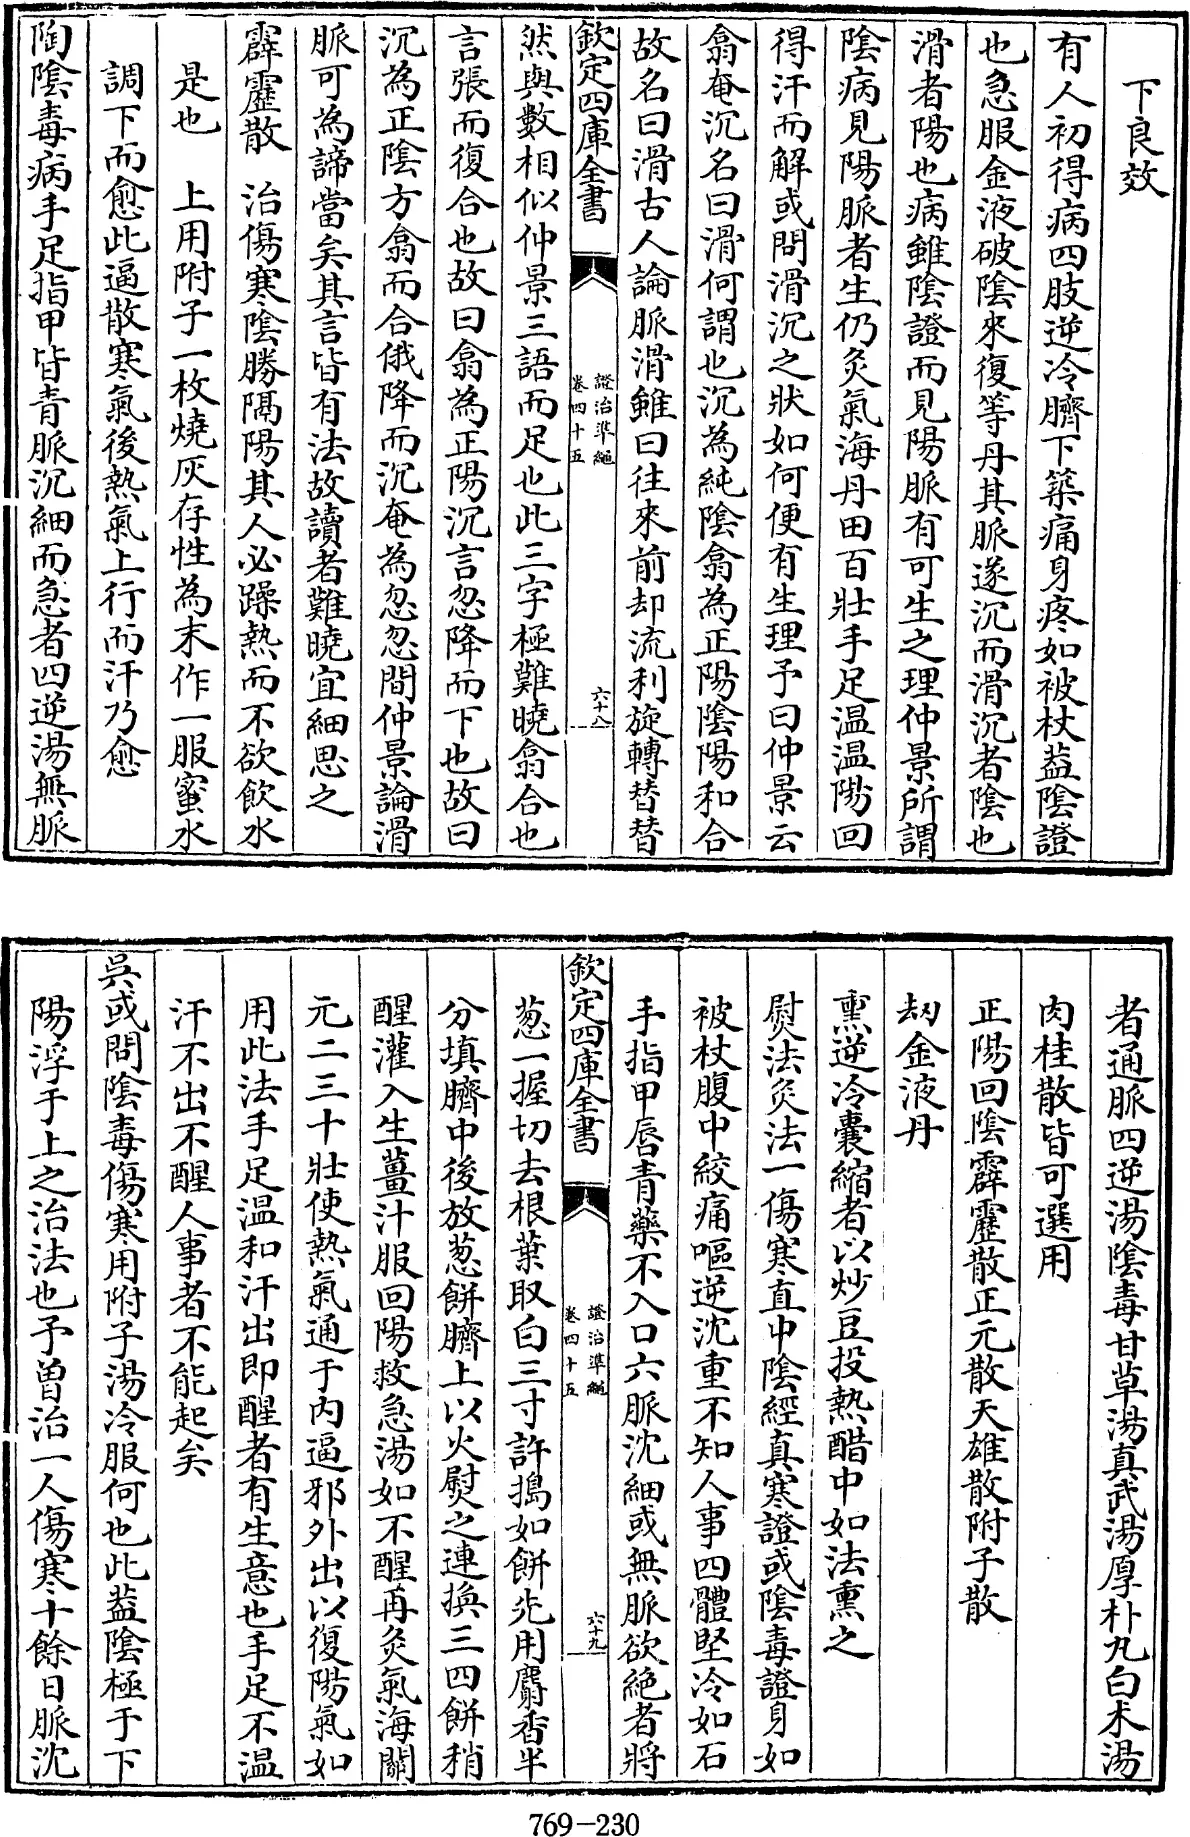 下良效
有人初得病四肢逆冷臍下築痛身疼如被杖葢陰證
也急服金液破陰來復等丹其脈遂沉而滑沉者陰也
滑者陽也病雖陰證而見陽脈有可生之理仲景所謂
陰病見陽脈者生仍灸氣海丹田百壯手足温温陽回
得汗而解或問滑沉之狀如何便有生理予曰仲景云
翕奄沉名曰滑何謂也沉為純陰翕為正陽陰陽和合
故名曰滑古人論脈滑雖曰往來前却流利旋轉替替
欽定四庫全書
證治準繩
卷四十五
六十八
然與數相似仲景三語而足也此三字極難曉翕合也
言張而復合也故曰翕為正陽沉言忽降而下也故曰
沉為正陰方翕而合俄降而沉奄為忽忽間仲景論滑
脈可為諦當矣其言皆有法故讀者難曉宜細思之
霹靂散　治傷寒陰勝隔陽其人必躁熱而不欲飲水
是也　上用附子一枚燒灰存性為末作一服蜜水
調下而愈此逼散寒氣後熱氣上行而汗乃愈
陶陰毒病手足指甲皆青脈沉細而急者四逆湯無脈
者通脈四逆湯陰毒甘草湯真武湯厚朴丸白术湯
肉桂散皆可選用
正陽回陰霹靂散正元散天雄散附子散
刼金液丹
熏逆冷囊縮者以炒豆投熱醋中如法熏之
熨法灸法一傷寒直中陰經真寒證或陰毒證身如
被杖腹中絞痛嘔逆沈重不知人事四體堅冷如石
手指甲唇青藥不入口六脈沈細或無脈欲絶者將
欽定四庫全書
證治準繩
卷四十五
六十九
葱一握切去根葉取白三寸許搗如餅先用麝香半
分填臍中後放葱餅臍上以火熨之連換三四餅稍
醒灌入生薑汁服回陽救急湯如不醒再灸氣海關
元二三十壯使熱氣通于内逼邪外出以復陽氣如
用此法手足温和汗出即醒者有生意也手足不温
汗不出不醒人事者不能起矣
吳或問陰毒傷寒用附子湯冷服何也此葢陰極于下
陽浮于上之治法也予曾治一人傷寒十餘日脈沈
769-230